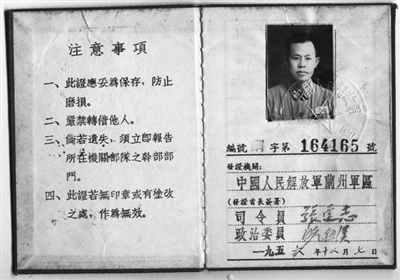 注意事項
一、此證應妥為保存,防止
磨損。
二、嚴禁轉借他人。
三、倘若遺失,須立即報告
所在機關部隊之幹部部
門。
四、此證若無印章或有塗改
之處,作為無效。
編號 字第 164165 號
發證機關:
中國人民解放軍蘭州軍區
(發證首長簽署)
司令員 張達志
政治委員 冼恒漢
一九五六年 月七日